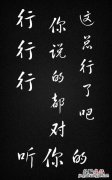 行行行
你说的都对
这总行了吧
听你的